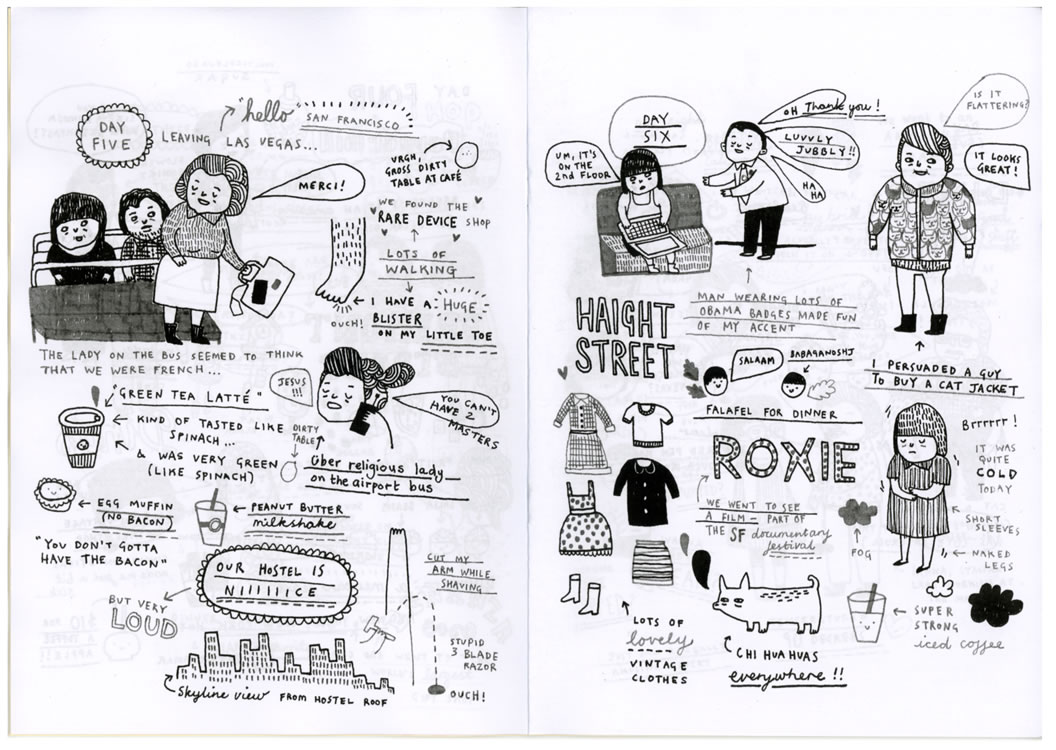 DAY
FIVE
LEAVING LAS VEGAS...
"hello
SAN FRANCISCO
MERCI!
URGH,
GROSS DIRTY
TABLE AT CAFÉ
WE FOUND THE
RARE DEVICE SHOP
LOTS OF
WALKING
I HAVE A HUGE
BLISTER
ON MY LITTLE TOE
OUCH!
THE LADY ON THE BUS SEEMED TO THINK
THAT WE WERE FRENCH...
"GREEN TEA LATTÉ"
KIND OF TASTED LIKE
SPINACH...
& WAS VERY GREEN
(LIKE SPINACH)
JESUS
!!!
YOU CAN'T
HAVE 2
MASTERS
DIRTY
TABLE
über religious lady
on the airport bus
EGG MUFFIN
(NO BACON)
"YOU DON'T GOTTA
HAVE THE BACON"
PEANUT BUTTER
milkshake
OUR HOSTEL IS
NIIIIIICE
BUT VERY
LOUD
CUT MY
ARM WHILE
SHAVING
STUPID
3 BLADE
RAZOR
OUCH!
Skyline view FROM HOSTEL ROOF
DAY
SIX
UM, IT'S
ON THE
2nd FLOOR
OH Thank you!
LUVVLY
JUBBLY!!
HA
HA
IS IT
FLATTERING?
IT LOOKS
GREAT!
MAN WEARING LOTS OF
OBAMA BADGES MADE FUN
OF MY ACCENT
I PERSUADED A GUY
TO BUY A CAT JACKET
HAIGHT
STREET
SALAAM
BABAGANOSHJ
FALAFEL FOR DINNER
ROXIE
WE WENT TO SEE
A FILM - PART OF
THE SF documentary
festival
Brrrrrr!
IT WAS
QUITE
COLD
TODAY
SHORT
SLEEVES
NAKED
LEGS
FOG
LOTS OF
lovely
VINTAGE
CLOTHES
CHIHUAHUAS
everywhere!!
SUPER
STRONG
iced coffee